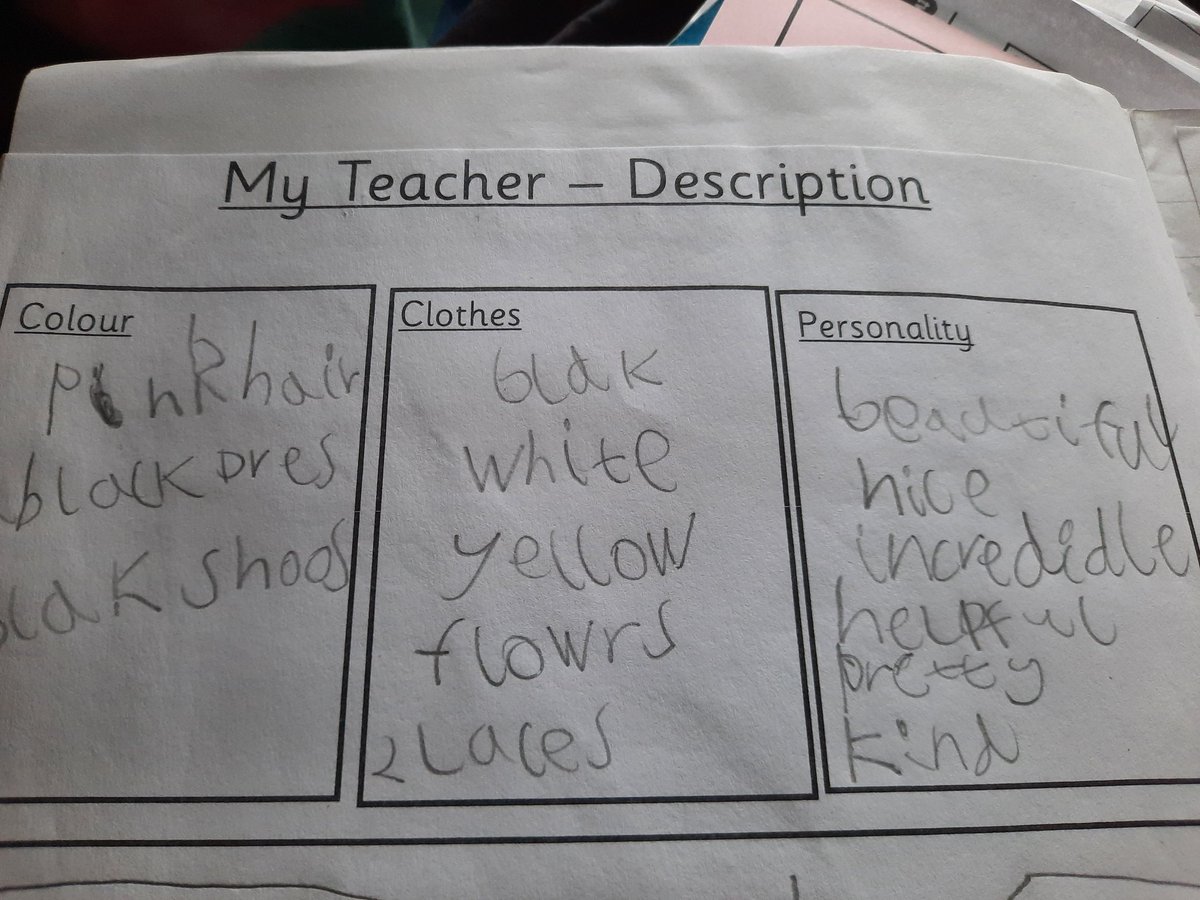 My Teacher – Description
Colour
pink hair
black Dres
blak shoos
Clothes
blak
white
yellow
flowrs
2 laces
Personality
beadtiful
nice
incrededle
helpful
pretty
kind